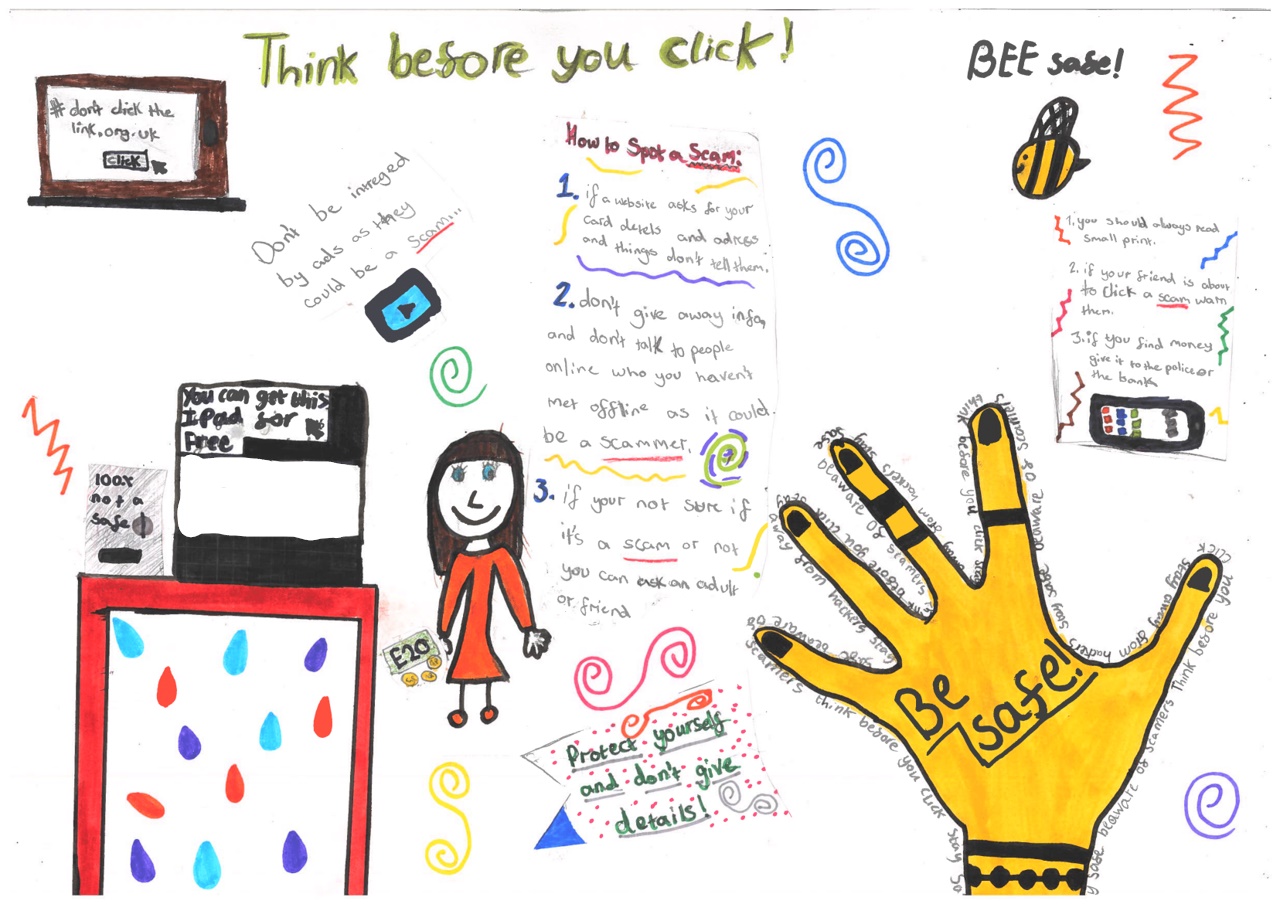 Think before you click!
BEE safe!
# don't click the
link.org.uk
click
Don't be intreged
by ads as they
could be a scam...
How to Spot a Scam:
1. if a website asks for your
card detels and adress
and things don't tell them.
2. don't give away info,
and don't talk to people
online who you haven't
met offline as it could
be a scammer.
3. if your not sure if
it's a scam or not
you can ask an adult
or friend
1. you should always read
small print.
2. if your friend is about
to click a scam warn
them.
3. if you find money
give it to the police or
the bank
You can get this
I Pad for
Free
100%
not a
safe
£20
Protect yourself
and don't give
details!
Be
safe!
scammers think before you click stay sa
safe beaware of
away from hackers stay
think before you click
beaware of scammers
think before you click stay
stay safe beaware of scammers
stay away from hackers
y safe beaware of scammers Think before you click